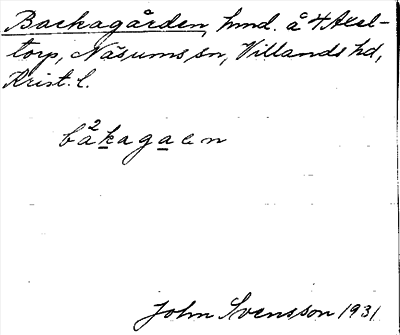 Backagården, hmd. å 4 Axel-
torp, Näsums sn, Villands hd,
Krist. l.
bà²kagaen
John Svensson 1931